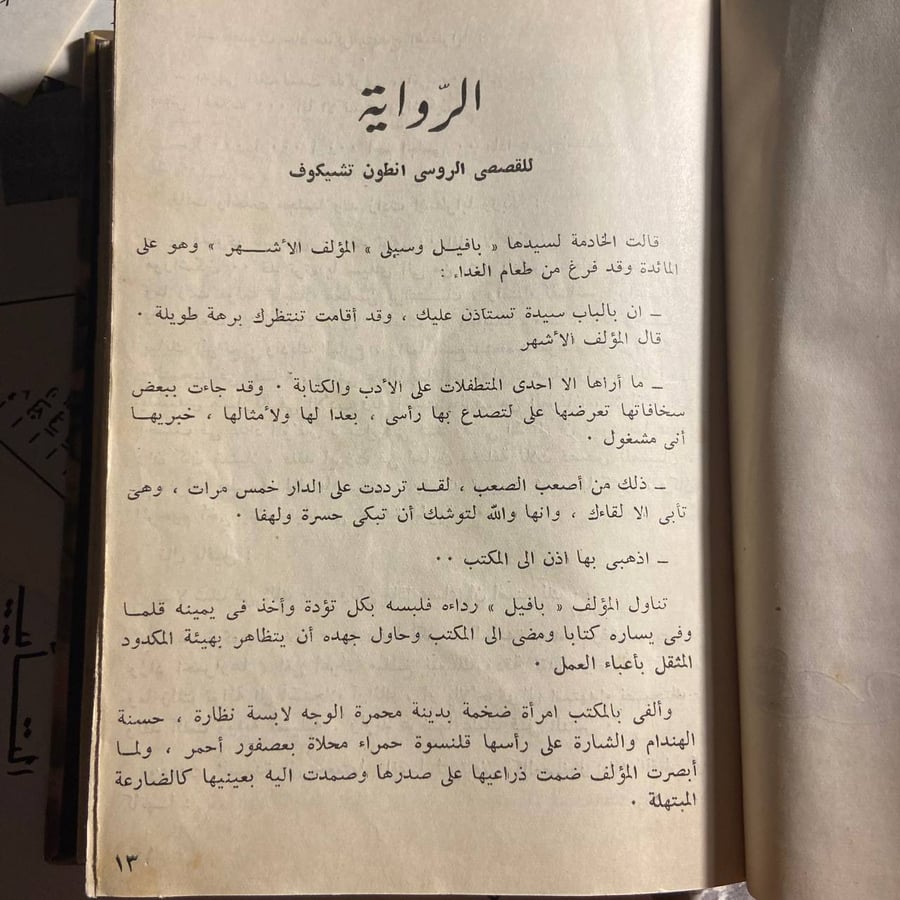 الرّواية
للقصصى الروسى انطون تشيكوف
قالت الخادمة لسيدها « بافيل وسيلى » المؤلف الأشهر » وهو على
المائدة وقد فرغ من طعام الغداء :
ــ ان بالباب سيدة تستاذن عليك ، وقد أقامت تنتظرك برهة طويلة ·
قال المؤلف الأشهر
ــ ما أراها الا احدى المتطفلات على الأدب والكتابة · وقد جاءت ببعض
سخافاتها تعرضها على لتصدع بها رأسى ، بعدا لها ولأمثالها ، خبريها
أنى مشغول ·
ــ ذلك من أصعب الصعب ، لقد ترددت على الدار خمس مرات ، وهى
تأبى الا لقاءك ، وانها والله لتوشك أن تبكى حسرة ولهفا ·
ــ اذهبى بها اذن الى المكتب ··
تناول المؤلف « بافيل » رداءه فلبسه بكل تؤدة وأخذ فى يمينه قلما
وفى يساره كتابا ومضى الى المكتب وحاول جهده أن يتظاهر بهيئة المكدود
المثقل بأعباء العمل ·
وألفى بالمكتب امرأة ضخمة بدينة محمرة الوجه لابسة نظارة ، حسنة
الهندام والشارة على رأسها قلنسوة حمراء محلاة بعصفور أحمر ، ولما
أبصرت المؤلف ضمت ذراعيها على صدرها وصمدت اليه بعينيها كالضارعة
المبتهلة ·
١٣